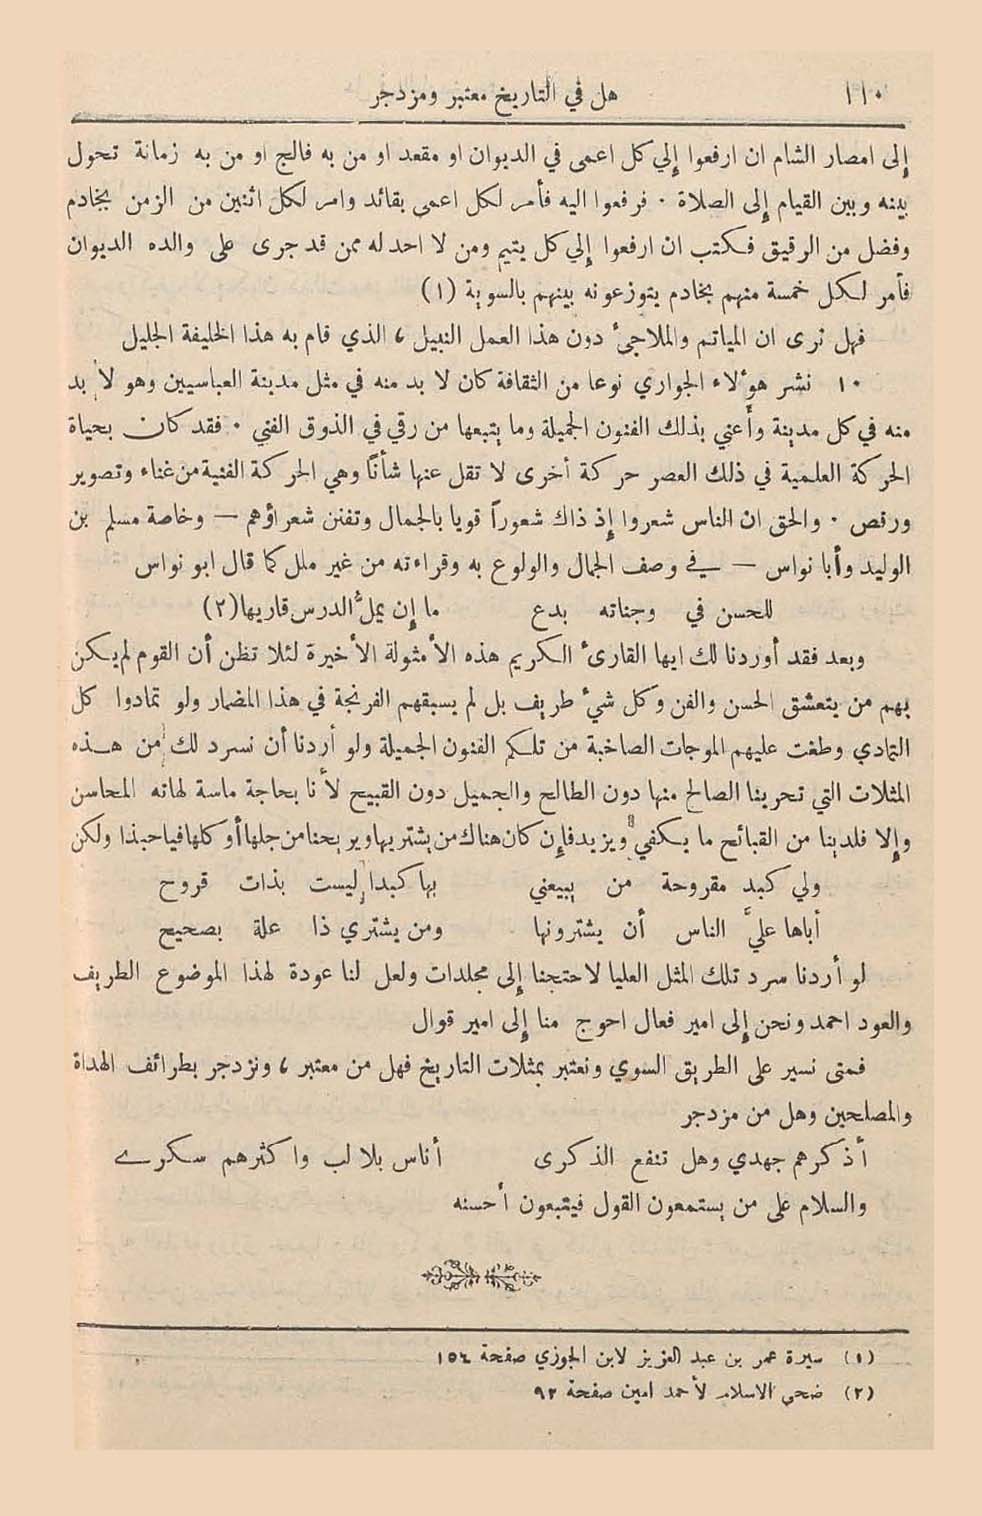 ١١٠ هل في التاريخ معتبر ومزدجر
إلى امصار الشام ان ارفعوا إلي كل اعمى في الديوان او مقعد او من به فالج او من به زمانة تحول
بينه وبين القيام إلى الصلاة ٠ فرفعوا اليه فأمر لكل اعمى بقائد وامر لكل اثنين من الزمن بخادم
وفضل من الرقيق فكتب ان ارفعوا إلي كل يتيم ومن لا احد له ممن قد جرى على والده الديوان
فأمر لكل خمسة منهم بخادم يتوزعونه بينهم بالسوية (١)
فهل نرى ان المياتم والملاجىء دون هذا العمل النبيل ، الذي قام به هذا الخليفة الجليل
١٠ نشر هؤلاء الجواري نوعا من الثقافة كان لا بد منه في مثل مدينة العباسيين وهو لا بد
منه في كل مدينة وأعني بذلك الفنون الجميلة وما يتبعها من رقي في الذوق الفني ٠ فقد كان بحياة
الحركة العلمية في ذلك العصر حركة أخرى لا تقل عنها شأنًا وهي الحركة الفنية من غناء وتصوير
ورقص ٠ والحق ان الناس شعروا إذ ذاك شعوراً قويا بالجمال وتفنن شعراؤهم — وخاصة مسلم بن
الوليد وأبا نواس — في وصف الجمال والولوع به وقراءته من غير ملل كما قال ابو نواس
للحسن في وجناته بدع ما إن يملُّ الدرس قاريها (٢)
وبعد فقد أوردنا لك ايها القارىء الكريم هذه الأمثولة الأخيرة لئلا تظن أن القوم لم يكن
بهم من يتعشق الحسن والفن وكل شيء طريف بل لم يسبقهم الفرنجة في هذا المضمار ولو تمادوا كل
التمادي وطغت عليهم الموجات الصاخبة من تلكم الفنون الجميلة ولو أردنا أن نسرد لك من هذه
المثلات التي تحرينا الصالح منها دون الطالح والجميل دون القبيح لأنا بحاجة ماسة لهاته المحاسن
وإلا فلدينا من القبائح ما يكفي ويزيد فإن كان هناك من يشتريها ويريحنا من جلها أو كلها فيا حبذا ولكن
ولي كبد مقروحة من يبيعني بها كبدا ليست بذات قروح
أباها عليَّ الناس أن يشترونها ومن يشتري ذا علة بصحيح
لو أردنا سرد تلك المثل العليا لاحتجنا إلى مجلدات ولعل لنا عودة لهذا الموضوع الطريف
والعود احمد ونحن إلى امير فعال احوج منا إلى امير قوال
فمتى نسير على الطريق السوي ونعتبر بمثلات التاريخ فهل من معتبر ، ونزدجر بطرائف الهداة
والمصلحين وهل من مزدجر
أذكرهم جهدي وهل تنفع الذكرى أناس بلا لب واكثرهم سكرى
والسلام على من يستمعون القول فيتبعون أحسنه
(١) سيرة عمر بن عبد العزيز لابن الجوزي صفحة ١٥٤
(٢) ضحى الاسلام لأحمد امين صفحة ٩٢